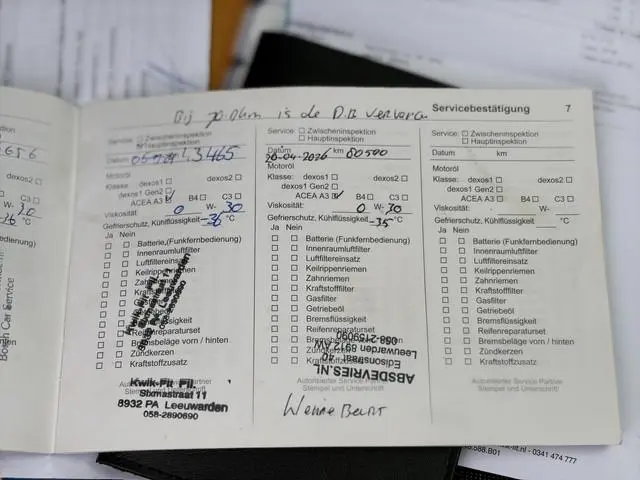 Bij is de D.B
Servicebestätigung 7
Service: Zwischeninspektion
Hauptinspektion
Datum 43465
Motoröl
Klasse: dexos1 dexos2
dexos1 Gen2
ACEA A3 B4 C3
Viskosität: 0 W- 30
Gefrierschutz, Kühlflüssigkeit -36 °C
Ja Nein
Batterie (Funkfernbedienung)
Innenraumluftfilter
Luftfiltereinsatz
Keilrippenriemen
Zahnriemen
Reifenreparaturset
Bremsbeläge vorn / hinten
Zündkerzen
Kraftstoffzusatz
Kwik-Fit Fil.
Sixmastraat 11
8932 PA Leeuwarden
058-2890690
Service: Zwischeninspektion
Hauptinspektion
Datum km
20-04-2026 80500
Motoröl
Klasse: dexos1 dexos2
dexos1 Gen2
ACEA A3 B4 C3
Viskosität: 0 W- 30
Gefrierschutz, Kühlflüssigkeit -35 °C
Ja Nein
Batterie (Funkfernbedienung)
Innenraumluftfilter
Luftfiltereinsatz
Keilrippenriemen
Zahnriemen
Kraftstofffilter
Gasfilter
Getriebeöl
Bremsflüssigkeit
Reifenreparaturset
Kraftstoffzusatz
ABSDEVRIES.NL
Edisonstraat 40
Leeuwarden 8912 AW
058-2159090
Autorisierter Service Partner
Stempel und Unterschrift
Service: Zwischeninspektion
Hauptinspektion
Datum km
Motoröl
Klasse: dexos1 dexos2
dexos1 Gen2
ACEA A3 B4 C3
Viskosität: W-
Gefrierschutz, Kühlflüssigkeit °C
Ja Nein
Batterie (Funkfernbedienung)
Innenraumluftfilter
Luftfiltereinsatz
Keilrippenriemen
Zahnriemen
Kraftstofffilter
Gasfilter
Getriebeöl
Bremsflüssigkeit
Reifenreparaturset
Bremsbeläge vorn / hinten
Zündkerzen
Kraftstoffzusatz
Autorisierter Service Partner
Stempel und Unterschrift
Bosch Car Service
0341 474 777